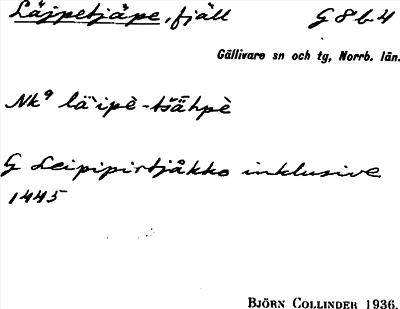 Läjpetjåpe, fjäll G 8 b 4
Gällivare sn och tg, Norrb. län.
Nk⁹ lä̆ipè-tšāhpè
G Leipipirtjåkko inklusive
1445
BJÖRN COLLINDER 1936.